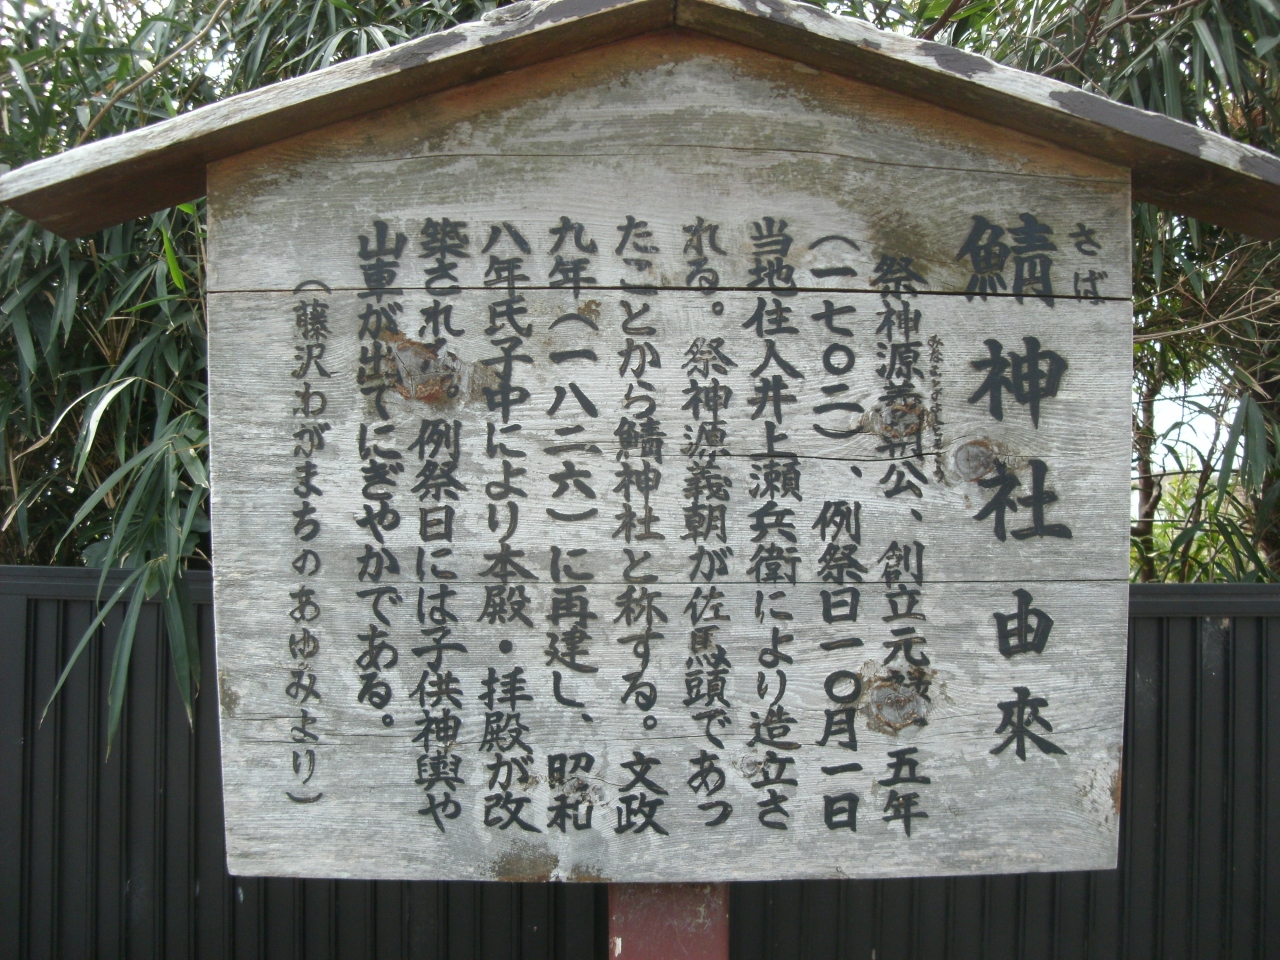 さば
鯖神社由來
みなもとのよしとも
祭神源義朝公、創立元禄五年
(一七〇二)、例祭日一〇月一日
当地住人井上瀬兵衛により造立さ
れる。祭神源義朝が佐馬頭であっ
たことから鯖神社と称する。文政
九年(一八二六)に再建し、昭和
八年氏子中により本殿・拝殿が改
築される。例祭日には子供神輿や
山車が出てにぎやかである。
(藤沢わがまちのあゆみより)